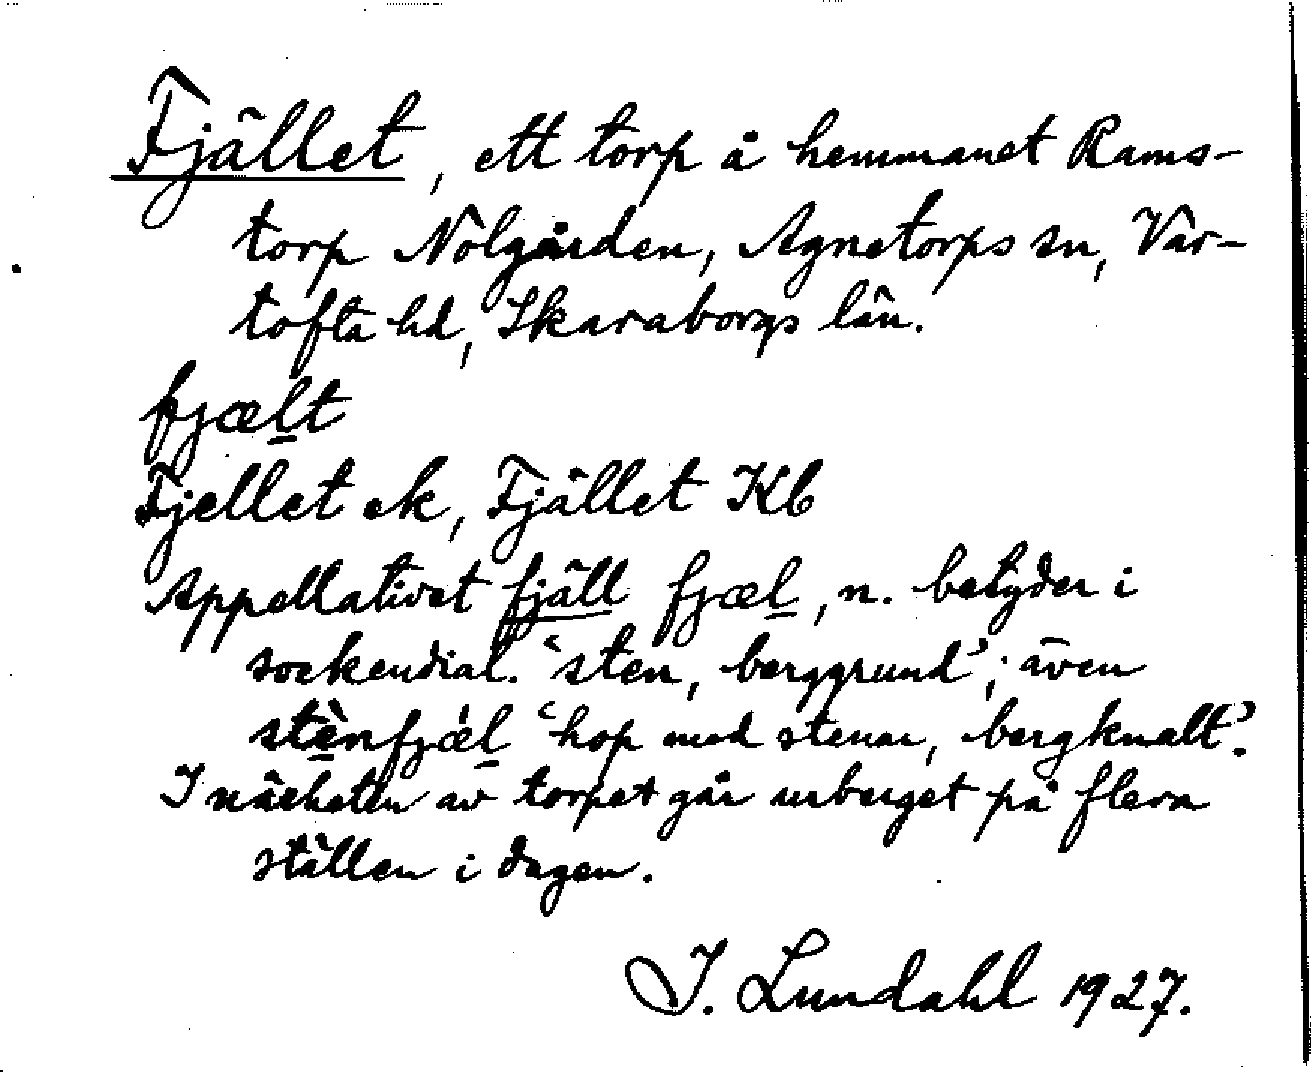 Fjället, ett torp å hemmanet Rams-
torp Nolgården, Agnetorps sn, Var-
tofta hd, Skaraborgs län.
fjælt
Fjellet ek, Fjället Kb
Appellativet fjäll fjæl, n. betyder i
sockendial. ‘sten, berggrund’; även
stènfjæ̀l ‘hop med stenar, bergknalt’.
I närheten av torpet går urberget på flera
ställen i dagen.
I. Lundahl 1927.